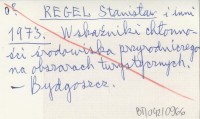 REGEL Stanisław i inni
1973. Wskaźniki chłonno-
ści środowiska przyrodniczego
na obszarach turystycznych.
- Bydgoszcz.